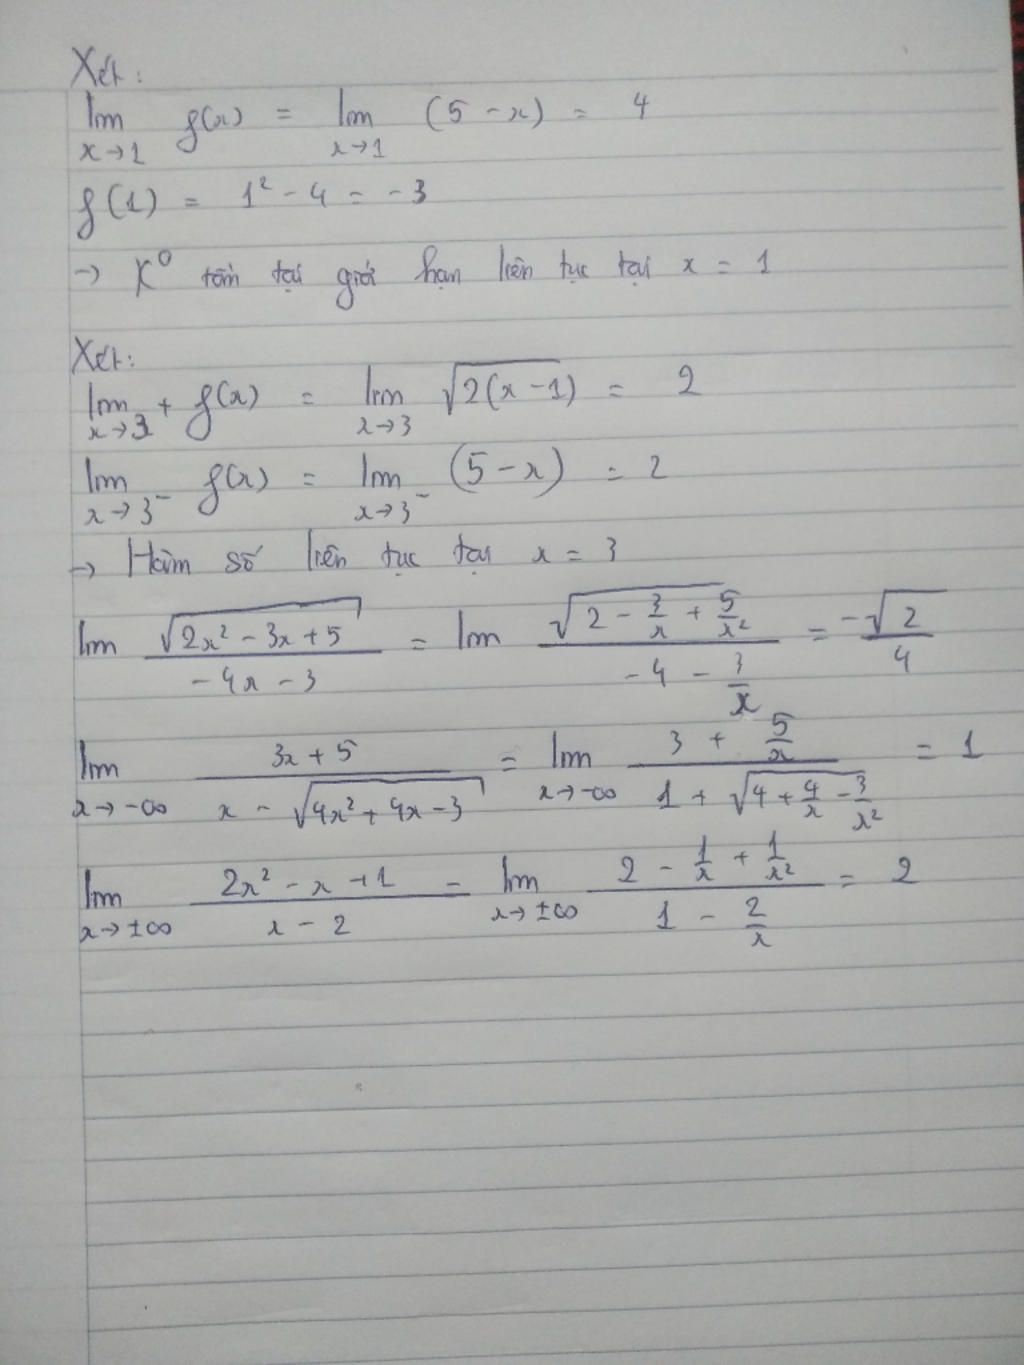 Xét:
lim x→1 f(x) = lim x→1 (5 - x) = 4
f(1) = 1² - 4 = -3
→ K⁰ tồn tại giới hạn liên tục tại x = 1
Xét:
lim x→3⁺ f(x) = lim x→3 √2(x-1) = 2
lim x→3⁻ f(x) = lim x→3⁻ (5-x) = 2
→ Hàm số liên tục tại x = 3
lim √(2x² - 3x + 5) / (-4x - 3) = lim √(2 - 3/x + 5/x²) / (-4 - 3/x) = -√2 / 4
lim x→-∞ (3x + 5) / (x - √(4x² + 4x - 3)) = lim x→-∞ (3 + 5/x) / (1 + √(4 + 4/x - 3/x²)) = 1
lim x→±∞ (2x² - x + 1) / (x - 2) = lim x→±∞ (2 - 1/x + 1/x²) / (1 - 2/x) = 2